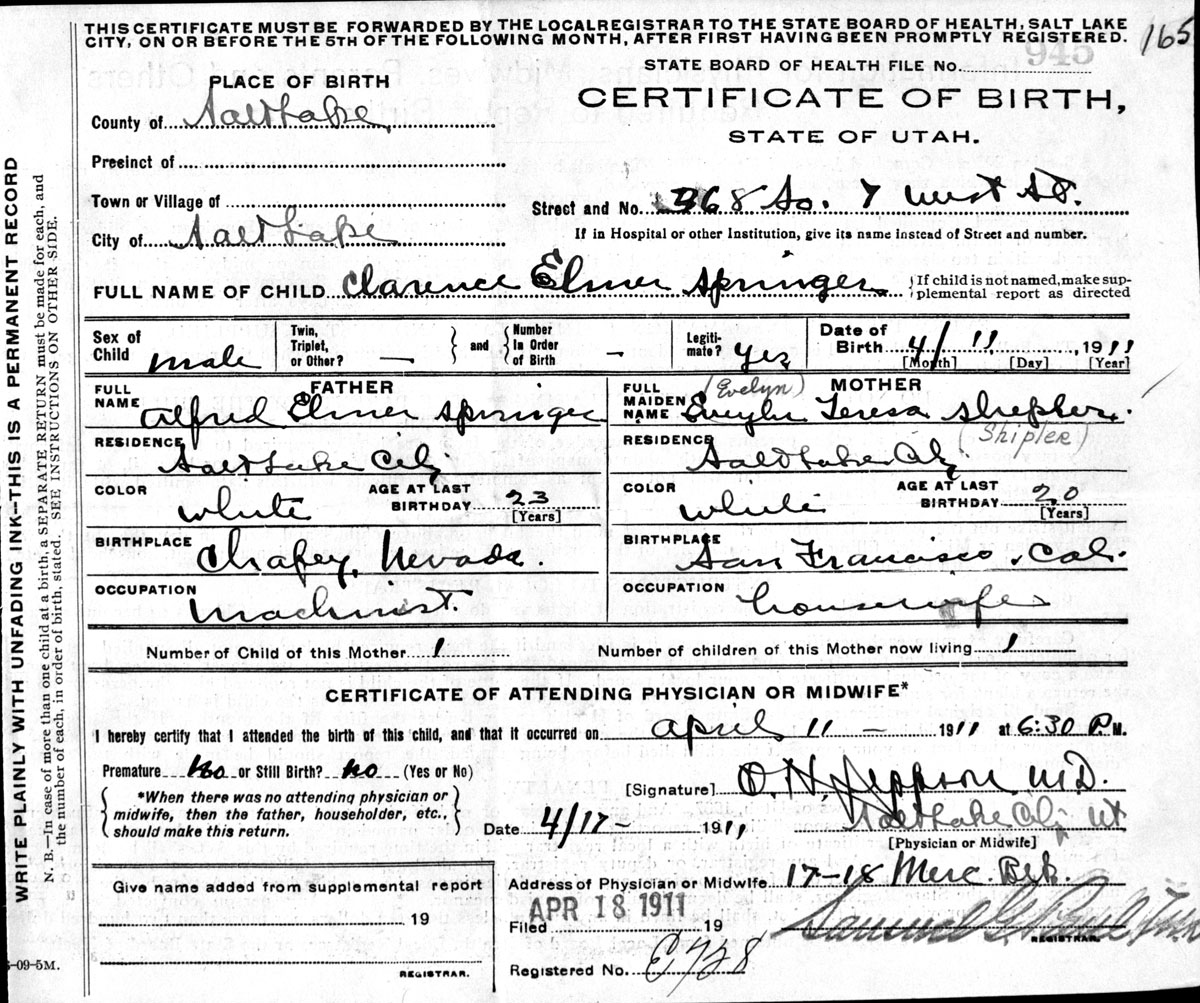 THIS CERTIFICATE MUST BE FORWARDED BY THE LOCAL REGISTRAR TO THE STATE BOARD OF HEALTH, SALT LAKE
CITY, ON OR BEFORE THE 5TH OF THE FOLLOWING MONTH, AFTER FIRST HAVING BEEN PROMPTLY REGISTERED.
165
STATE BOARD OF HEALTH FILE NO. 945
PLACE OF BIRTH
CERTIFICATE OF BIRTH,
STATE OF UTAH.
County of Salt Lake
Precinct of
Town or Village of
Street and No. 368 So. 7 West St.
City of Salt Lake
If in Hospital or other Institution, give its name instead of Street and number.
FULL NAME OF CHILD Clarence Elmer Springer
If child is not named, make sup-
plemental report as directed
Sex of Child male
Twin, Triplet, or Other? —
and
Number In Order of Birth -
Legiti-mate? yes
Date of Birth 4/ 11, 1911
[Month] [Day] [Year]
FATHER
FULL NAME Alfred Elmer Springer
MOTHER
FULL MAIDEN NAME (Evelyn) Teresa Shepler.
(Shipler)
RESIDENCE Salt Lake City
RESIDENCE Salt Lake City
COLOR white
AGE AT LAST BIRTHDAY 23 [Years]
COLOR white
AGE AT LAST BIRTHDAY 20 [Years]
BIRTHPLACE Nevada.
BIRTHPLACE San Francisco. Cal.
OCCUPATION Machinist.
OCCUPATION housewife
Number of Child of this Mother 1
Number of children of this Mother now living 1
CERTIFICATE OF ATTENDING PHYSICIAN OR MIDWIFE*
I hereby certify that I attended the birth of this child, and that it occurred on april 11 - 1911 at 6:30 P.M.
Premature No or Still Birth? No (Yes or No)
[Signature] O. H. Jeppson M.D.
*When there was no attending physician or
midwife, then the father, householder, etc.,
should make this return.
Date 4/17- 1911
Salt Lake City Ut
[Physician or Midwife]
Give name added from supplemental report
Address of Physician or Midwife 17-18 Merc. Blk.
19
Filed APR 18 1911 19
REGISTRAR.
REGISTRAR.
Registered No. E728
-09-5M.
WRITE PLAINLY WITH UNFADING INK—THIS IS A PERMANENT RECORD
N. B.—In case of more than one child at a birth, a SEPARATE RETURN must be made for each, and
the number of each, in order of birth, stated. SEE INSTRUCTIONS ON OTHER SIDE.